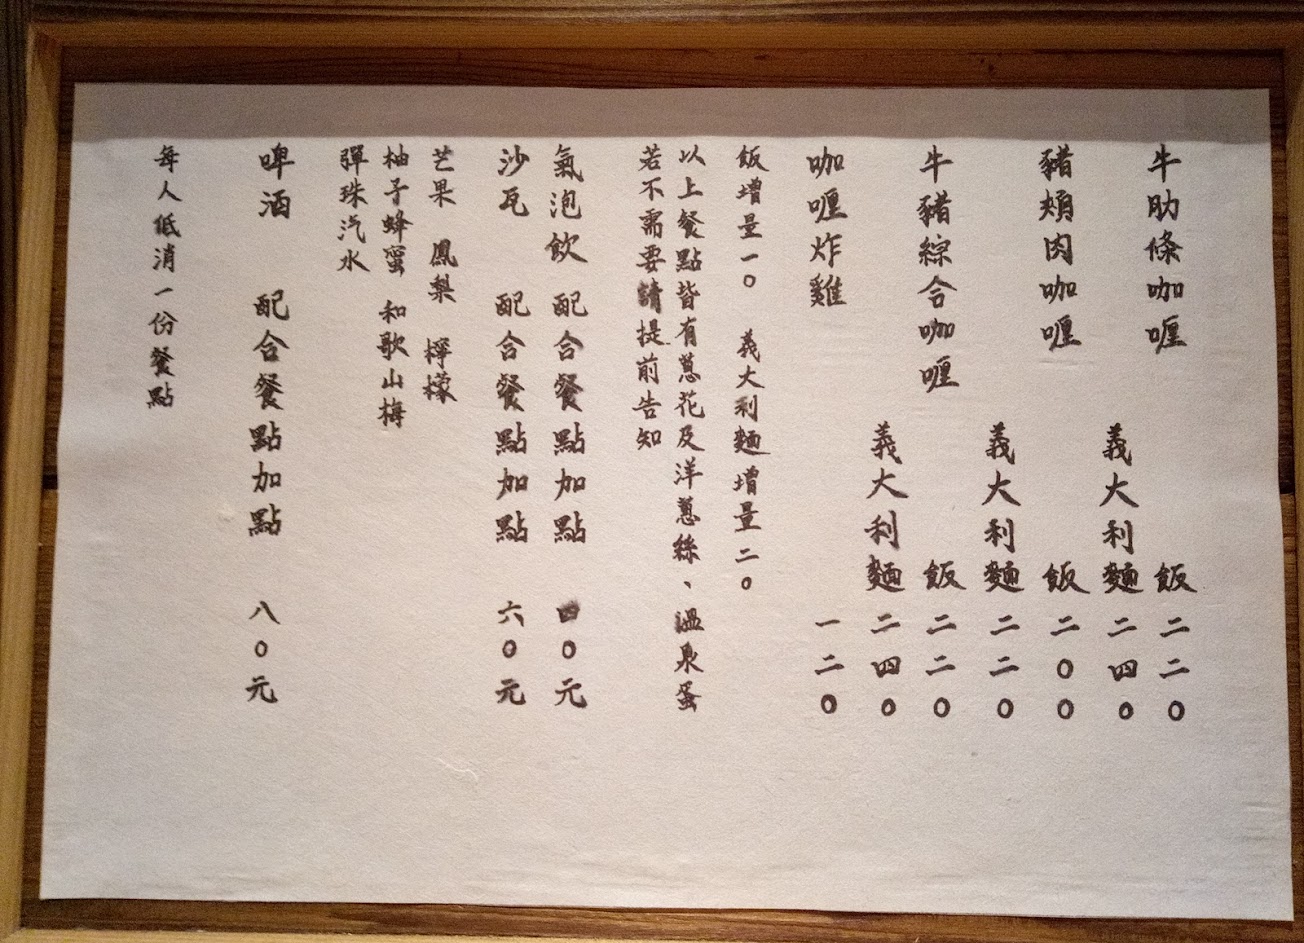 牛肋條咖喱　飯二二０
義大利麵二四０
豬頰肉咖喱　飯二００
義大利麵二二０
牛豬綜合咖喱　飯二二０
義大利麵二四０
咖喱炸雞　一二０
飯增量一０　義大利麵增量二０
以上餐點皆有蔥花及洋蔥絲、溫泉蛋
若不需要請提前告知
氣泡飲　配合餐點加點　四０元
沙瓦　配合餐點加點　六０元
芒果　鳳梨　檸檬
柚子蜂蜜　和歌山梅
彈珠汽水
啤酒　配合餐點加點　八０元
每人低消一份餐點